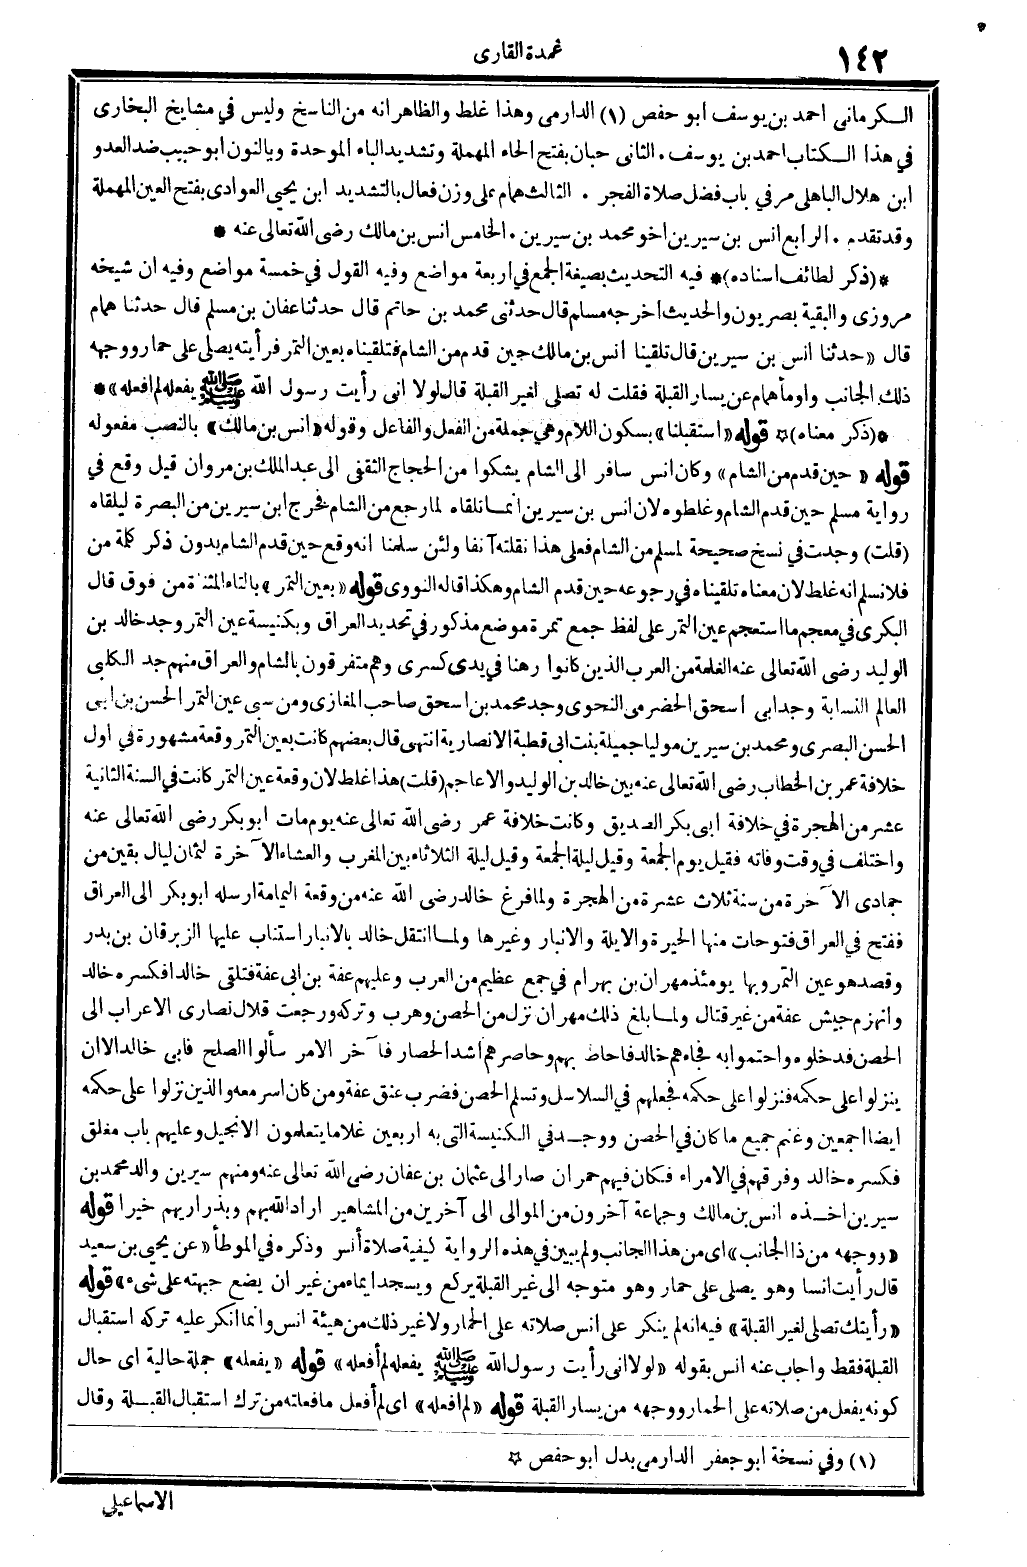 ١٤٢
عمدة القارى
الكرمانى احمد بن يوسف ابو حفص (١) الدارمى وهذا غلط والظاهر انه من الناسخ وليس في مشايخ البخارى
في هذا الكتاب احمد بن يوسف . الثانى حبان بفتح الحاء المهملة وتشديد الباء الموحدة وبالنون ابو حبيب ضد العدو
ابن هلال الباهلى مر في باب فضل صلاة الفجر . الثالث همام على وزن فعال بالتشديد ابن يحيى العوادى بفتح العين المهملة
وقد تقدم . الرابع انس بن سيرين اخو محمد بن سيرين . الخامس انس بن مالك رضى الله تعالى عنه *
*(ذكر لطائف اسناده)* فيه التحديث بصيغة الجمع في اربعة مواضع وفيه القول في خمسة مواضع وفيه ان شيخه
مروزى والبقية بصريون والحديث اخرجه مسلم قال حدثنى محمد بن حاتم قال حدثنا عفان بن مسلم قال حدثنا همام
قال «حدثنا انس بن سيرين قال تلقينا انس بن مالك حين قدم من الشام فتلقيناه بعين التمر فرأيته يصلى على حمار ووجهه
ذلك الجانب واومأ همام عن يسار القبلة فقلت له تصلى لغير القبلة قال لولا انى رأيت رسول الله ﷺ يفعله لم افعله» *
*(ذكر معناه)* قوله «استقبلنا» بسكون اللام وهي جملة من الفعل والفاعل وقوله «انس بن مالك» بالنصب مفعوله
قوله « حين قدم من الشام» وكان انس سافر الى الشام يشكوا من الحجاج الثقفى الى عبد الملك بن مروان قيل وقع في
رواية مسلم حين قدم الشام وغلطوه لان انس بن سيرين انما تلقاه لما رجع من الشام فخرج ابن سيرين من البصرة ليلقاه
(قلت) وجدت في نسخ صحيحة لمسلم من الشام فعلى هذا نقلته آنفا ولئن سلمنا انه وقع حين قدم الشام بدون ذكر كلمة من
فلا نسلم انه غلط لان معناه تلقيناه في رجوعه حين قدم الشام وهكذا قاله النووى قوله «بعين التمر» بالتاء المثناة من فوق قال
البكرى في معجم ما استعجم عين التمر على لفظ جمع تمرة موضع مذكور في تحديد العراق وبكنيسة عين التمر وجد خالد بن
الوليد رضى الله تعالى عنه الغلمة من العرب الذين كانوا رهنا في يدى كسرى وهم متفرقون بالشام والعراق منهم جد الكلبى
العالم النسابة وجد ابى اسحق الحضرمى النحوى وجد محمد بن اسحق صاحب المغازى ومن سبى عين التمر الحسن بن ابى
الحسن البصرى ومحمد بن سيرين موليا جميلة بنت ابى قطبة الانصارية انتهى قال بعضهم كانت بعين التمر وقعة مشهورة في اول
خلافة عمر بن الخطاب رضى الله تعالى عنه بين خالد بن الوليد والاعاجم (قلت) هذا غلط لان وقعة عين التمر كانت في السنة الثانية
عشر من الهجرة في خلافة ابى بكر الصديق وكانت خلافة عمر رضى الله تعالى عنه يوم مات ابو بكر رضى الله تعالى عنه
واختلف في وقت وفاته فقيل يوم الجمعة وقيل ليلة الجمعة وقيل ليلة الثلاثاء بين المغرب والعشاء الآخرة لثمان ليال بقين من
جمادى الآخرة من سنة ثلاث عشرة من الهجرة ولما فرغ خالد رضى الله عنه من وقعة اليمامة ارسله ابو بكر الى العراق
ففتح في العراق فتوحات منها الحيرة والايلة والانبار وغيرها ولما انتقل خالد بالانبار استناب عليها الزبرقان بن بدر
وقصد هو عين التمر وبها يومئذ مهران بن بهرام في جمع عظيم من العرب وعليهم عفة بن ابى عفة فتلقى خالدا فكسره خالد
وانهزم جيش عفة من غير قتال ولما بلغ ذلك مهران نزل من الحصن وهرب وتركه ورجعت قلال نصارى الاعراب الى
الحصن فدخلوه واحتموا به فجاءهم خالد فاحاط بهم وحاصرهم اشد الحصار فآخر الامر سألوا الصلح فابى خالد الا ان
ينزلوا على حكمه فنزلوا على حكمه فجعلهم في السلاسل وتسلم الحصن فضرب عنق عفة ومن كان اسر معه والذين نزلوا على حكمه
ايضا اجمعين وغنم جميع ما كان في الحصن ووجد في الكنيسة التى به اربعين غلاما يتعلمون الانجيل وعليهم باب مغلق
فكسره خالد وفرقهم في الامراء فكان فيهم حمران صار الى عثمان بن عفان رضى الله تعالى عنه ومنهم سيرين والد محمد بن
سيرين اخذه انس بن مالك وجماعة آخرون من الموالى الى آخرين من المشاهير اراد الله بهم وبذراريهم خيرا قوله
«ووجهه من ذا الجانب» اى من هذا الجانب ولم يبين في هذه الرواية كيفية صلاة أنس وذكره في الموطأ «عن يحيى بن سعيد
قال رأيت انسا وهو يصلى على حمار وهو متوجه الى غير القبلة يركع ويسجد ايماء من غير ان يضع جبهته على شىء» قوله
«رأيتك تصلى لغير القبلة» فيه انه لم ينكر على انس صلاته على الحمار ولا غير ذلك من هيئة انس وانما انكر عليه تركه استقبال
القبلة فقط واجاب عنه انس بقوله «لولا انى رأيت رسول الله ﷺ يفعله لم أفعله» قوله «يفعله» جملة حالية اى حال
كونه يفعل من صلاته على الحمار ووجهه من يسار القبلة قوله «لم افعله» اى لم أفعل ما فعلته من ترك استقبال القبلة وقال
(١) وفي نسخة ابو جعفر الدارمى بدل ابو حفص *
الاسماعيلى